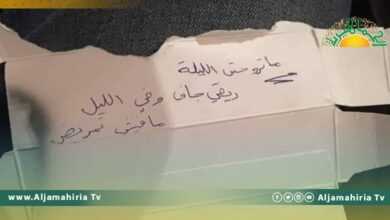 ماتروحش الليلة
ريقي جاف وفي الليل
مافيش تمريض
www.Aljamahiria Tv
Aljamahiria Tv